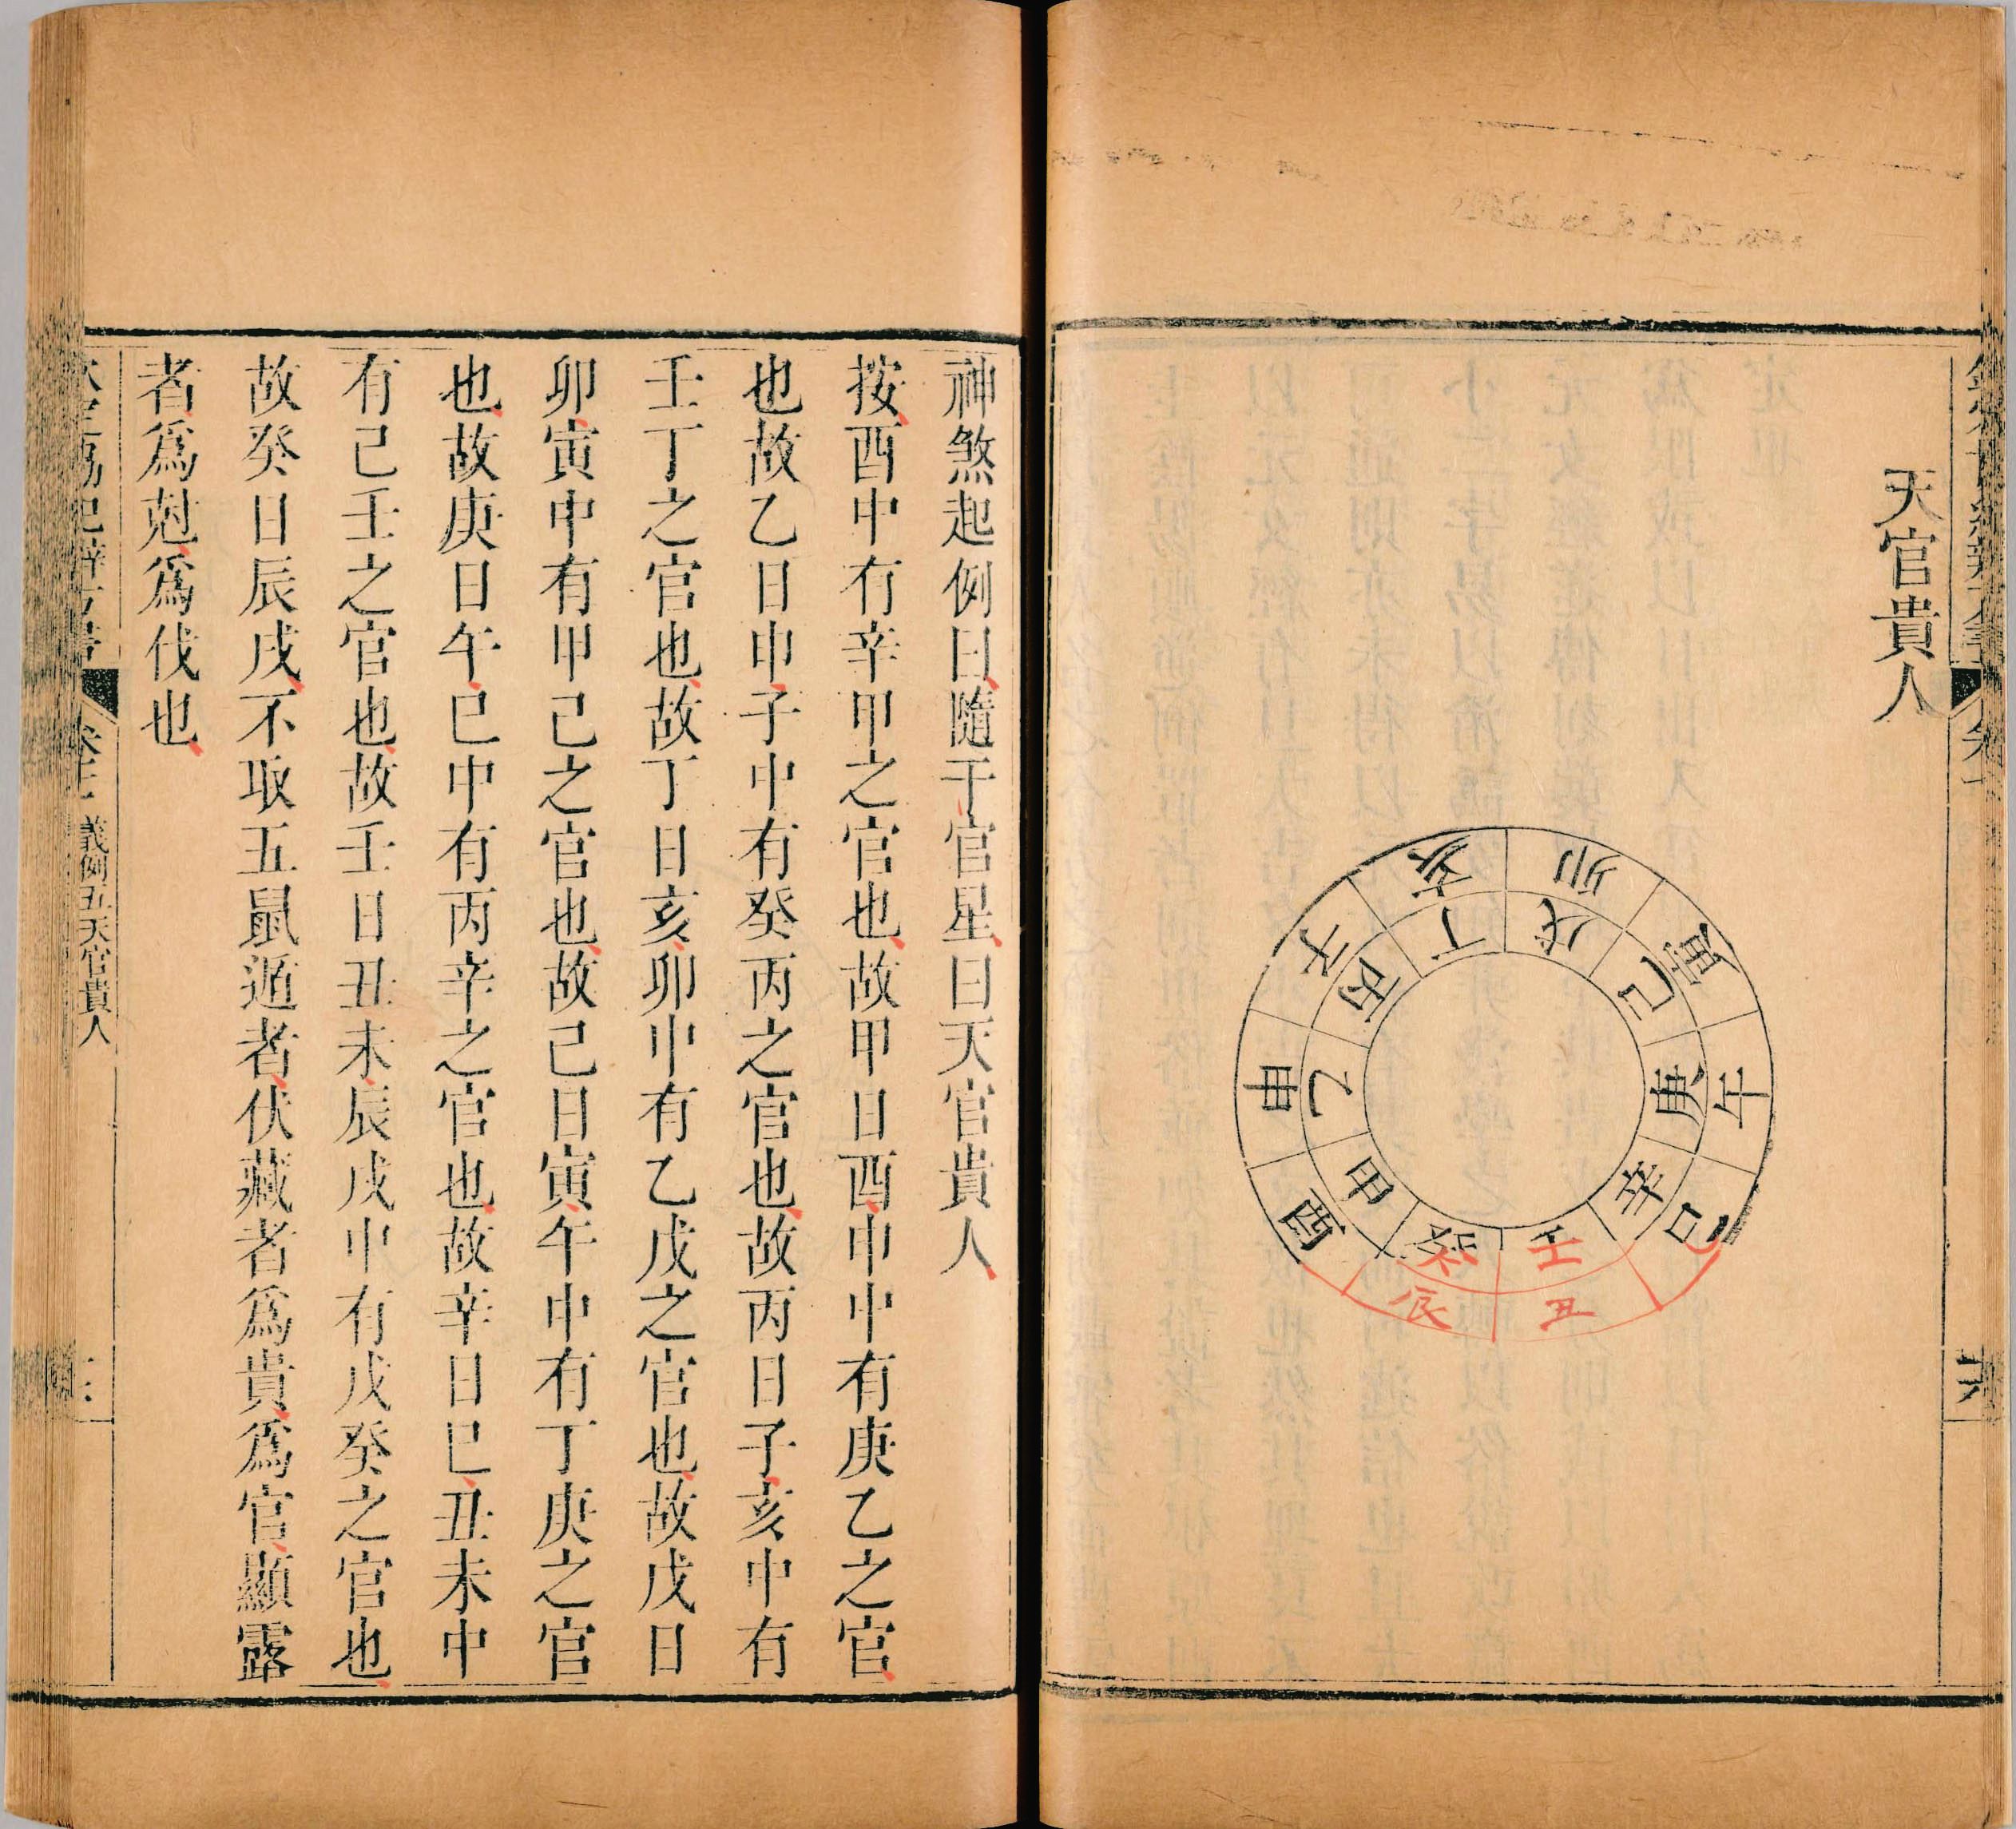 天官貴人
卯
寅
午
巳
丑
辰
酉
申
子
亥
戊
己
庚
辛
壬
癸
甲
乙
丙
丁
神煞起例曰隨干官星曰天官貴人
按酉中有辛甲之官也故甲日酉申中有庚乙之官
也故乙日申子中有癸丙之官也故丙日子亥中有
壬丁之官也故丁日亥卯中有乙戊之官也故戊日
卯寅中有甲己之官也故己日寅午中有丁庚之官
也故庚日午巳中有丙辛之官也故辛日巳丑未中
有己壬之官也故壬日丑未辰戌中有戊癸之官也
故癸日辰戌不取五鼠遁者伏藏者爲貴爲官顯露
者爲尅爲伐也
義例五天官貴人